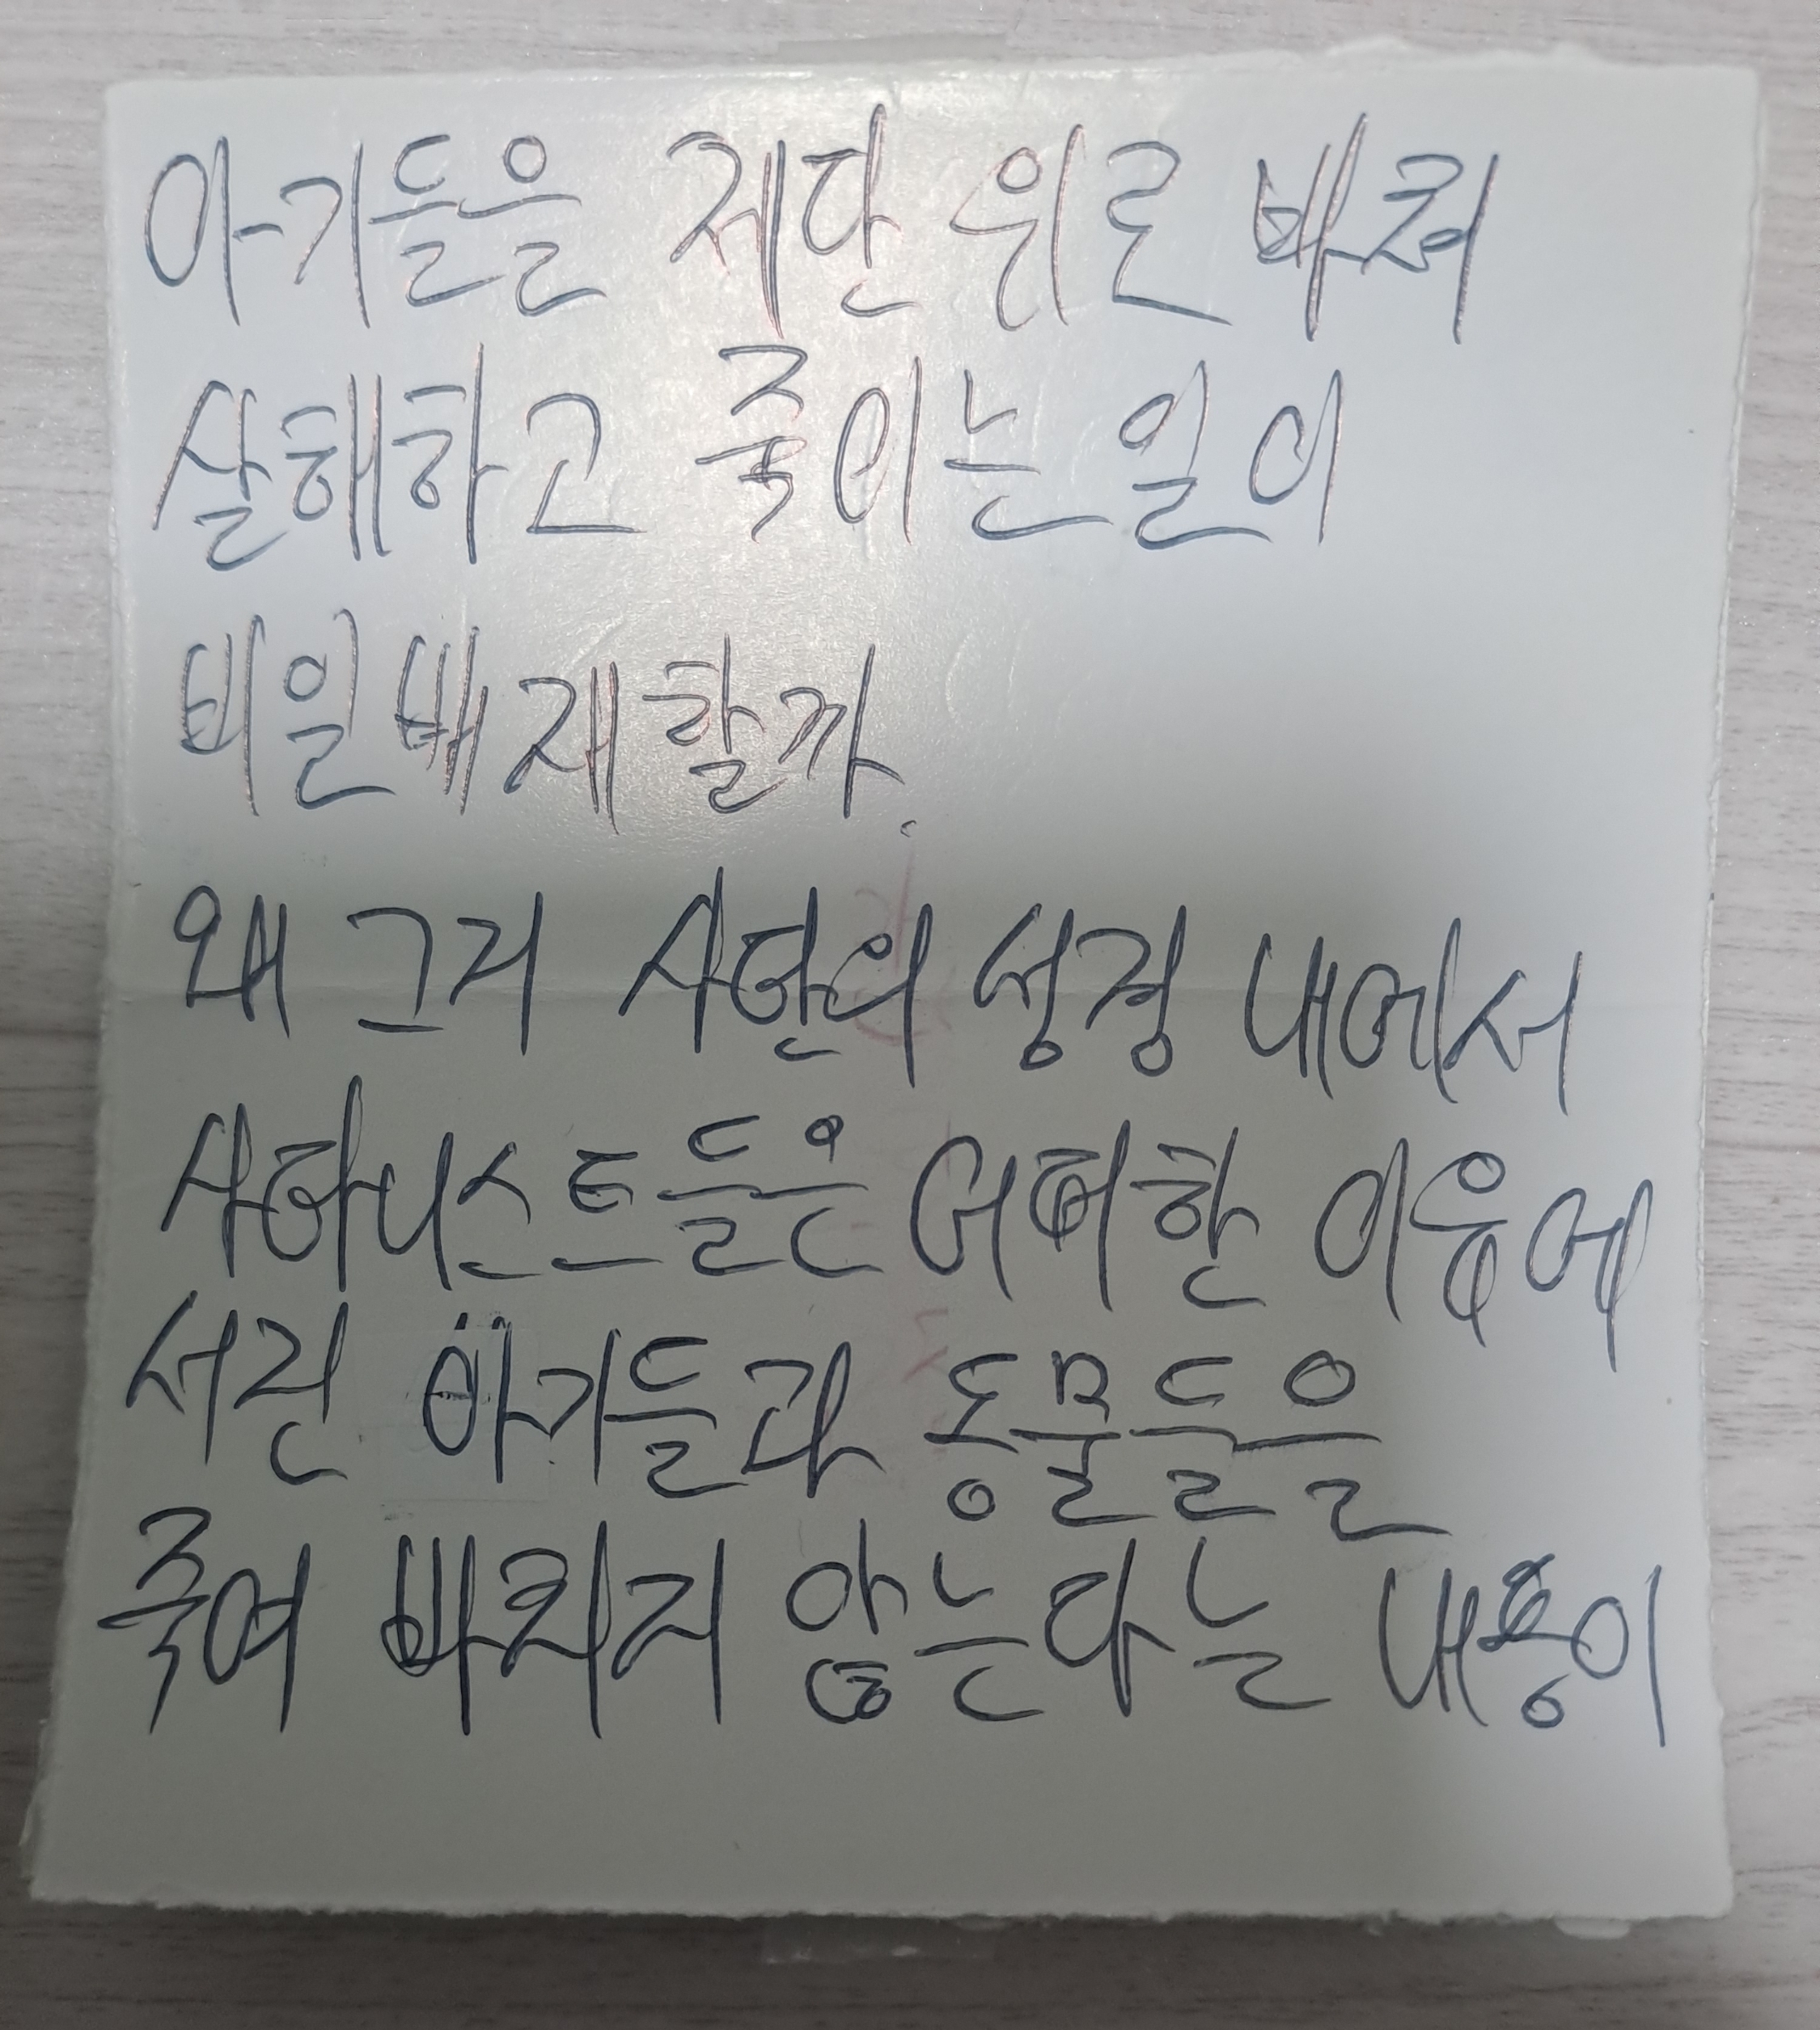 아기들을 제단 위로 바쳐
살해하고 죽이는 일이
비일배재할까.
왜 그러 사탄의 성경 내에서
사타니스트들은 어떠한 이유에
서건 아기들과 동물들을
죽여 바치지 않는다는 내용이